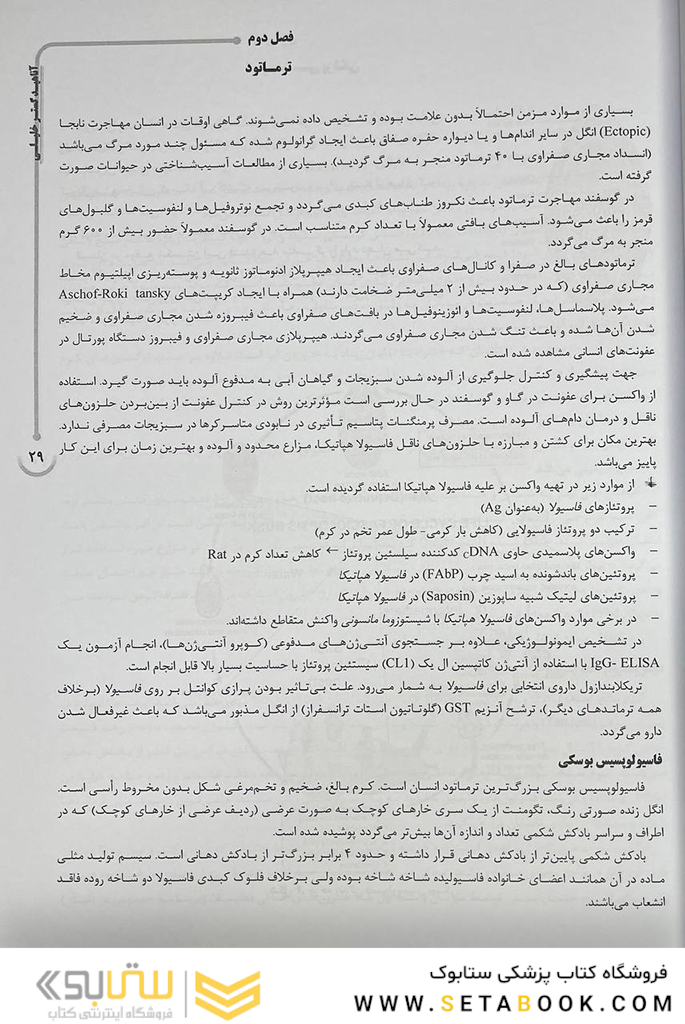 فصل دوم
ترماتود
آناهید گستر خلیلی
۲۹
بسیاری از موارد مزمن احتمالاً بدون علامت بوده و تشخیص داده نمی‌شوند. گاهی اوقات در انسان مهاجرت نابجا
(Ectopic) انگل در سایر اندام‌ها و یا دیواره حفره صفاق باعث ایجاد گرانولوم شده که مسئول چند مورد مرگ می‌باشد
(انسداد مجاری صفراوی با ۴۰ ترماتود منجر به مرگ گردید). بسیاری از مطالعات آسیب‌شناختی در حیوانات صورت
گرفته است.
در گوسفند مهاجرت ترماتود باعث نکروز طناب‌های کبدی می‌گردد و تجمع نوتروفیل‌ها و لنفوسیت‌ها و گلبول‌های
قرمز را باعث می‌شود. آسیب‌های بافتی معمولاً با تعداد کرم متناسب است. در گوسفند معمولاً حضور بیش از ۶۰۰ گرم
منجر به مرگ می‌گردد.
ترماتودهای بالغ در صفرا و کانال‌های صفراوی باعث ایجاد هیپرپلاز ادنوماتوز ثانویه و پوسته‌ریزی اپیلتیوم مخاط
مجاری صفراوی (که در حدود بیش از ۲ میلی‌متر ضخامت دارند) همراه با ایجاد کریپت‌های Aschof-Roki tansky
می‌شود. پلاسماسل‌ها، لنفوسیت‌ها و ائوزینوفیل‌ها در بافت‌های صفراوی باعث فیبروزه شدن مجاری صفراوی و ضخیم
شدن آن‌ها شده و باعث تنگ شدن مجاری صفراوی می‌گردند. هیپرپلازی مجاری صفراوی و فیبروز دستگاه پورتال در
عفونت‌های انسانی مشاهده شده است.
جهت پیشگیری و کنترل جلوگیری از آلوده شدن سبزیجات و گیاهان آبی به مدفوع آلوده باید صورت گیرد. استفاده
از واکسن برای عفونت در گاو و گوسفند در حال بررسی است مؤثرترین روش در کنترل عفونت از بین‌بردن حلزون‌های
ناقل و درمان دام‌های آلوده است. مصرف پرمنگنات پتاسیم تأثیری در نابودی متاسرکرها در سبزیجات مصرفی ندارد.
بهترین مکان برای کشتن و مبارزه با حلزون‌های ناقل فاسیولا هپاتیکا، مزارع محدود و آلوده و بهترین زمان برای این کار
پاییز می‌باشد.
از موارد زیر در تهیه واکسن بر علیه فاسیولا هپاتیکا استفاده گردیده است.
– پروتئازهای فاسیولا (به‌عنوان Ag)
– ترکیب دو پروتئاز فاسیولایی (کاهش بار کرمی- طول عمر تخم در کرم)
– واکسن‌های پلاسمیدی حاوی cDNA کدکننده سیلسئین پروتئاز ← کاهش تعداد کرم در Rat
– پروتئین‌های باندشونده به اسید چرب (FAbP) در فاسیولا هپاتیکا
– پروتئین‌های لیتیک شبیه ساپوزین (Saposin) در فاسیولا هپاتیکا
– در برخی موارد واکسن‌های فاسیولا هپاتیکا با شیستوزوما مانسونی واکنش متقاطع داشته‌اند.
در تشخیص ایمونولوژیکی، علاوه بر جستجوی آنتی‌ژن‌های مدفوعی (کوپرو آنتی‌ژن‌ها)، انجام آزمون یک
IgG- ELISA با استفاده از آنتی‌ژن کاتپسین ال یک (CL1) سیستئین پروتئاز با حساسیت بسیار بالا قابل انجام است.
تریکلابندازول داروی انتخابی برای فاسیولا به شمار می‌رود. علت بی‌تاثیر بودن پرازی کوانتل بر روی فاسیولا (برخلاف
همه ترماتدهای دیگر)، ترشح آنزیم GST (گلوتاتیون استات ترانسفراز) از انگل مذبور می‌باشد که باعث غیرفعال شدن
دارو می‌گردد.
فاسیولوپسیس بوسکی
فاسیولوپسیس بوسکی بزرگ‌ترین ترماتود انسان است. کرم بالغ، ضخیم و تخم‌مرغی شکل بدون مخروط رأسی است.
انگل زنده صورتی رنگ، تگومنت از یک سری خارهای کوچک به صورت عرضی (ردیف عرضی از خارهای کوچک) که در
اطراف و سراسر بادکش شکمی تعداد و اندازه آن‌ها بیش‌تر می‌گردد پوشیده شده است.
بادکش شکمی پایین‌تر از بادکش دهانی قرار داشته و حدود ۴ برابر بزرگ‌تر از بادکش دهانی است. سیسم تولید مثلی
ماده در آن همانند اعضای خانواده فاسیولیده شاخه شاخه بوده ولی برخلاف فلوک کبدی فاسیولا دو شاخه روده فاقد
انشعاب می‌باشند.
فروشگاه کتاب پزشکی ستابوک
WWW.SETABOOK.COM
ستابوک
فروشگاه اینترنتی کتاب